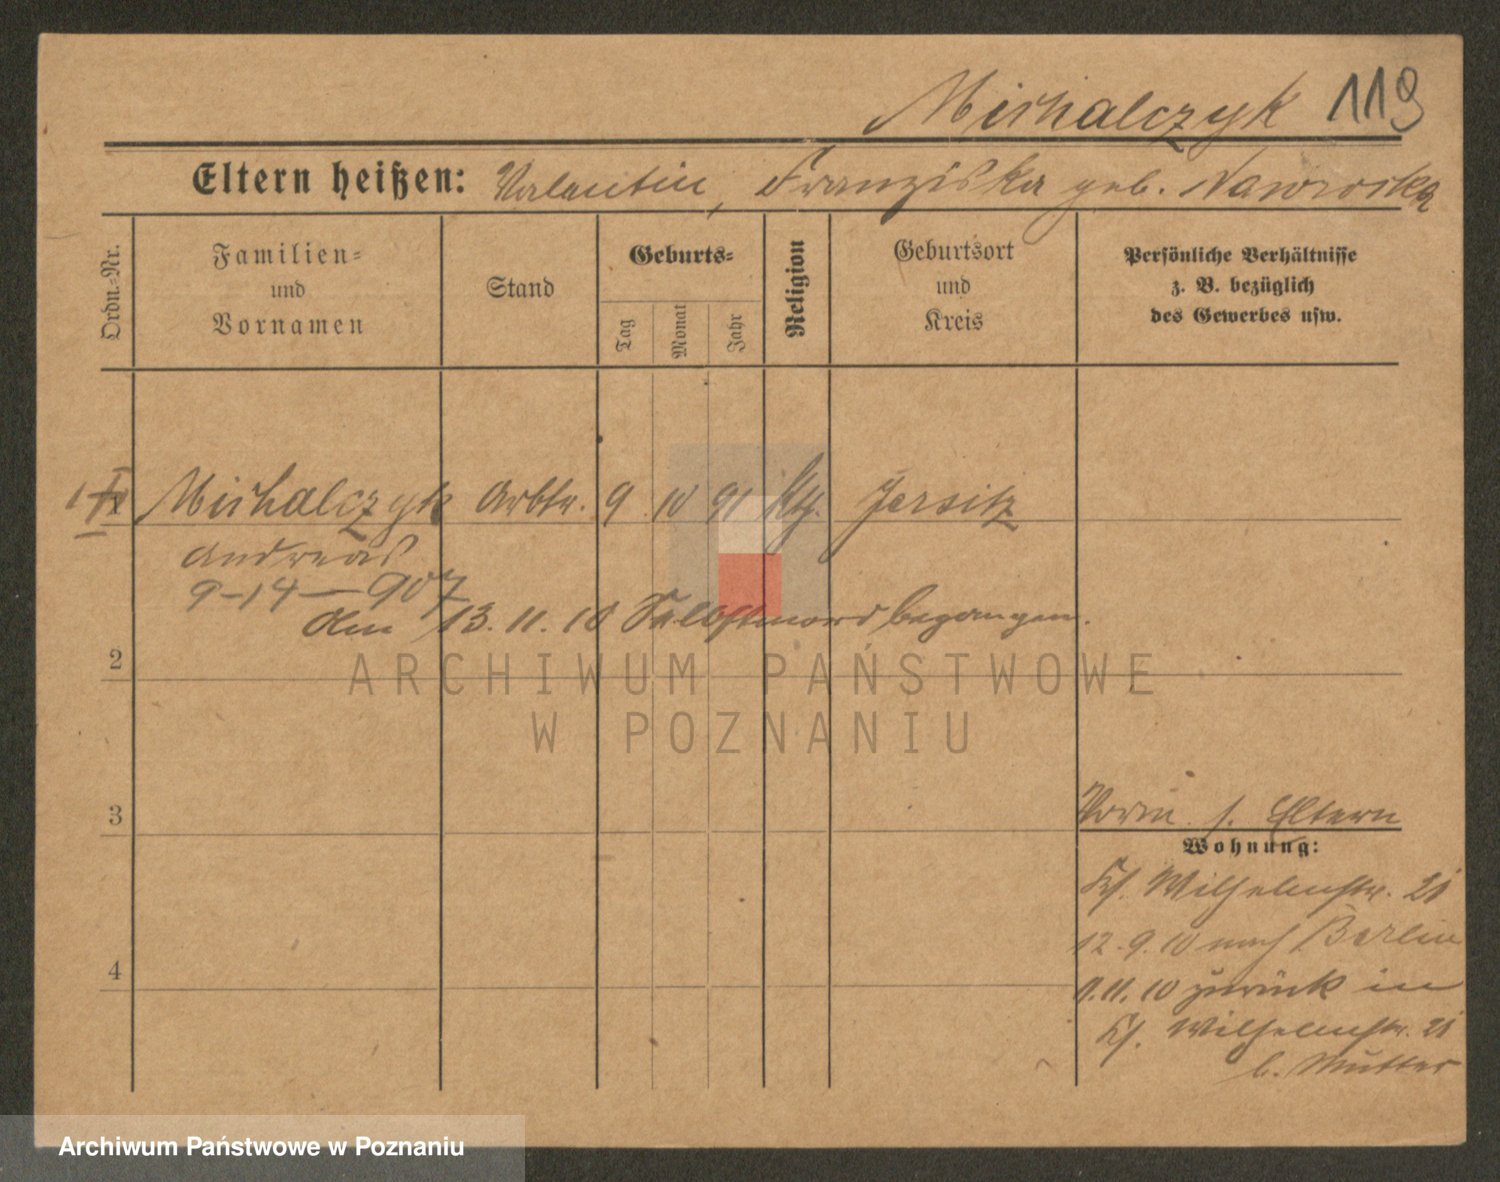 Michalczyk 119
Eltern heißen: Valentin, Franziska geb. Nawrocka
Ordn.-Nr.
Familien-
und
Vornamen
Stand
Geburts-
Tag
Monat
Jahr
Religion
Geburtsort
und
Kreis
Persönliche Verhältnisse
z. B. bezüglich
des Gewerbes usw.
1 Michalczyk Arbtr. 9 10 91 kth. Jersitz
Andreas
9-14-907
Am 13.11.10 Selbstmord begangen.
2
3
4
Vorm. s. Eltern
Wohnung:
Wilhelmstr. 21
12.9.10 nach Berlin
9.11.10 zurück in
Wilhelmstr. 21
b. Mutter
ARCHIWUM PAŃSTWOWE
W POZNANIU
Archiwum Państwowe w Poznaniu